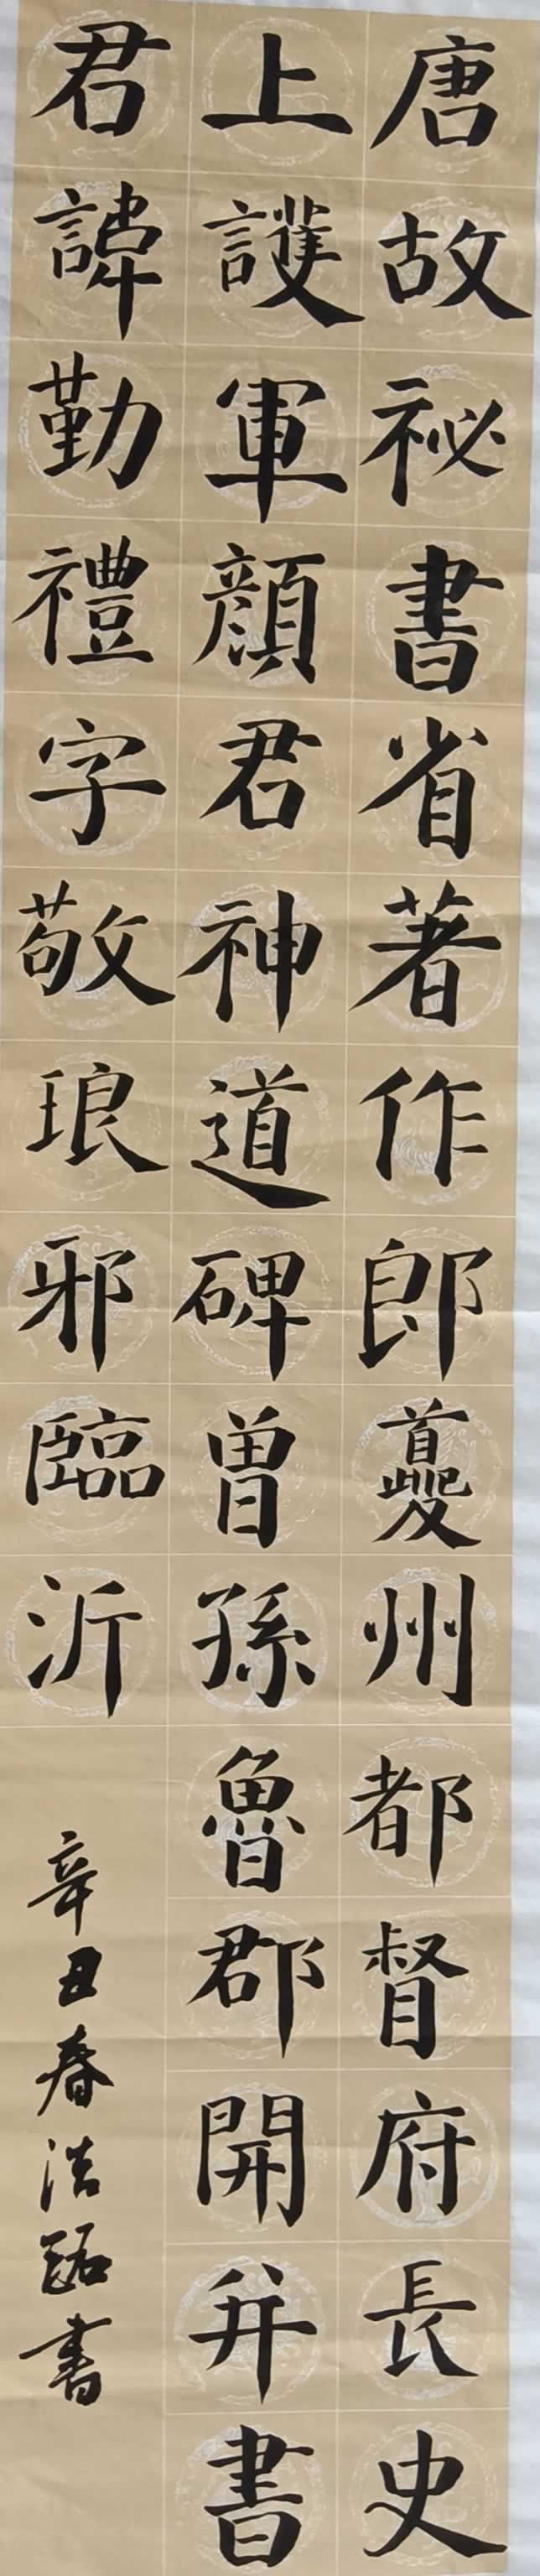 唐故祕書省著作郎夔州都督府長史
上護軍顏君神道碑曾孫魯郡開并書
君諱勤禮字敬琅邪臨沂
辛丑春浩銘書